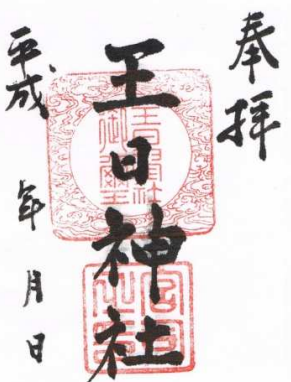 奉拝
王日神社
平成 年 月 日